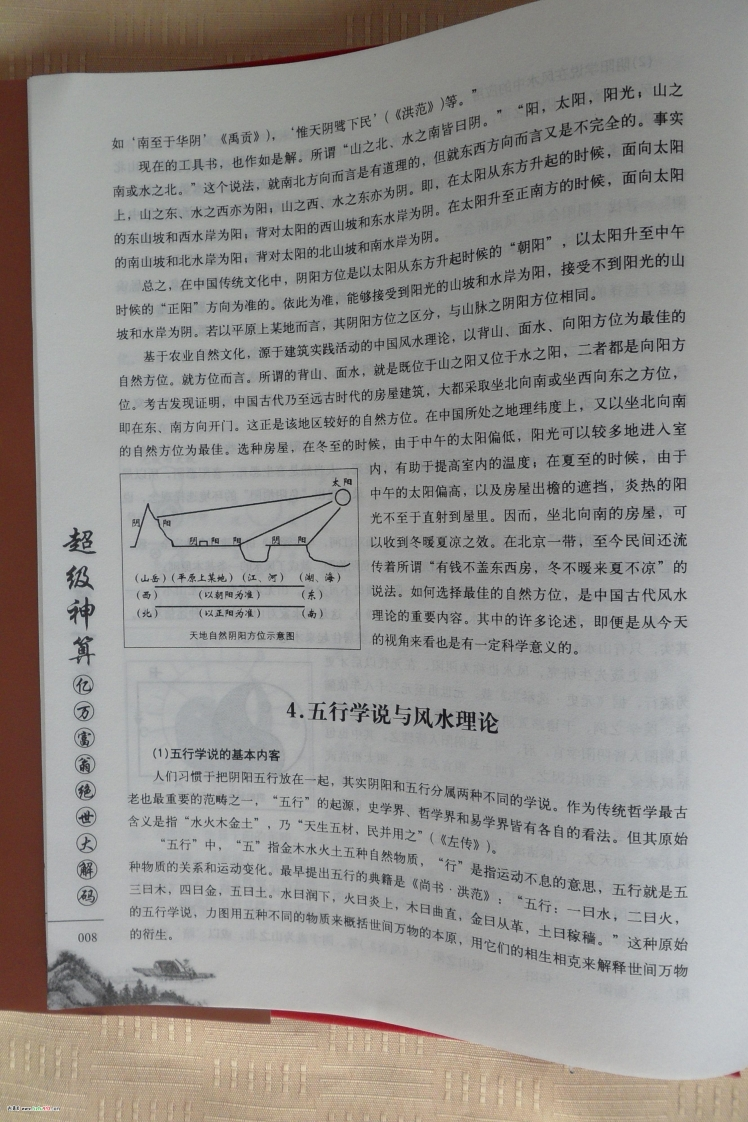 如‘南至于华阴’《禹贡》），‘惟天阴骘下民’（《洪范》）等。”
现在的工具书，也作如是解。所谓“山之北、水之南皆曰阴。”“阳，太阳，阳光；山之
南或水之北。”这个说法，就南北方向而言是有道理的，但就东西方向而言又是不完全的。事实
上，山之东、水之西亦为阳；山之西、水之东亦为阴。即，在太阳从东方升起的时候，面向太阳
的东山坡和西水岸为阳；背对太阳的西山坡和东水岸为阴。在太阳升至正南方的时候，面向太阳
的南山坡和北水岸为阳；背对太阳的北山坡和南水岸为阴。
总之，在中国传统文化中，阴阳方位是以太阳从东方升起时候的“朝阳”，以太阳升至中午
时候的“正阳”方向为准的。依此为准，能够接受到阳光的山坡和水岸为阳，接受不到阳光的山
坡和水岸为阴。若以平原上某地而言，其阴阳方位之区分，与山脉之阴阳方位相同。
基于农业自然文化，源于建筑实践活动的中国风水理论，以背山、面水、向阳方位为最佳的
自然方位。就方位而言。所谓的背山、面水，就是既位于山之阳又位于水之阳，二者都是向阳方
位。考古发现证明，中国古代乃至远古时代的房屋建筑，大都采取坐北向南或坐西向东之方位，
即在东、南方向开门。这正是该地区较好的自然方位。在中国所处之地理纬度上，又以坐北向南
的自然方位为最佳。选种房屋，在冬至的时候，由于中午的太阳偏低，阳光可以较多地进入室
内，有助于提高室内的温度；在夏至的时候，由于
中午的太阳偏高，以及房屋出檐的遮挡，炎热的阳
光不至于直射到屋里。因而，坐北向南的房屋，可
以收到冬暖夏凉之效。在北京一带，至今民间还流
传着所谓“有钱不盖东西房，冬不暖来夏不凉”的
说法。如何选择最佳的自然方位，是中国古代风水
理论的重要内容。其中的许多论述，即便是从今天
的视角来看也是有一定科学意义的。
太 阳
阴 阳
阴 阳 阳 阴 阳
（山岳）（平原上某地）（江、河）（湖、海）
（西） （以朝阳为准） （东）
（北） （以正阳为准） （南）
天地自然阴阳方位示意图
4.五行学说与风水理论
(1)五行学说的基本内客
人们习惯于把阴阳五行放在一起，其实阴阳和五行分属两种不同的学说。作为传统哲学最古
老也最重要的范畴之一，“五行”的起源，史学界、哲学界和易学界皆有各自的看法。但其原始
含义是指“水火木金土”，乃“天生五材，民并用之”（《左传》）。
“五行”中，“五”指金木水火土五种自然物质，“行”是指运动不息的意思，五行就是五
种物质的关系和运动变化。最早提出五行的典籍是《尚书·洪范》：“五行：一曰水，二曰火，
三曰木，四曰金，五曰土。水曰润下，火曰炎上，木曰曲直，金曰从革，土曰稼穑。”这种原始
的五行学说，力图用五种不同的物质来概括世间万物的本原，用它们的相生相克来解释世间万物
的衍生。
超级神算
亿万富翁绝世大解码
008